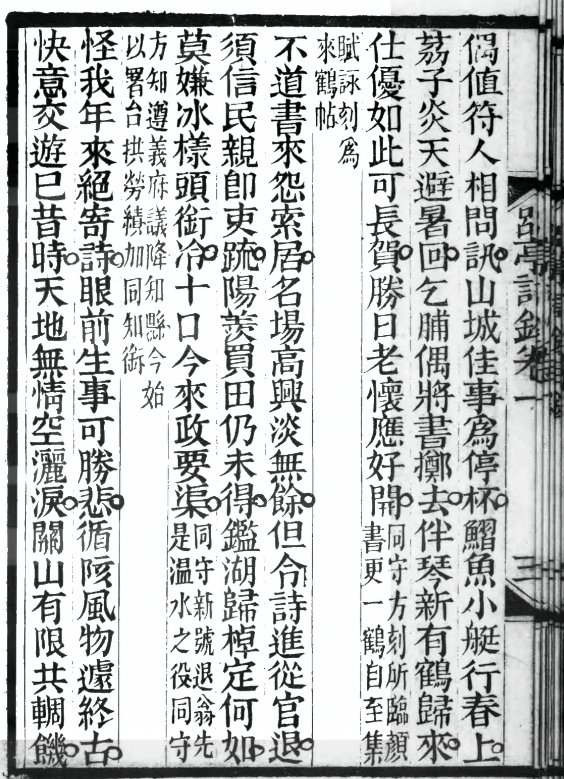 郘亭詩鈔卷一
三
偶值符人相問訊山城佳事為停杯鰼魚小艇行春上
荔子炎天避暑回乞脯偶將書擲去伴琴新有鶴歸來
仕優如此可長賀勝日老懷應好開
同守方刻所臨顏
書更一鶴自至集
賦詠刻為
來鶴帖
不道書來怨索居名場高興淡無餘但令詩進從官退
須信民親即吏疏陽羨買田仍未得鑑湖歸棹定何如
莫嫌冰樣頭銜冷十口今來政要渠
同守新號退翁先
是溫水之役同守
方知遵義府議降知縣今始
以署台拱勞績加同知銜
怪我年來絕寄詩眼前生事可勝悲循陔風物遽終古
快意交遊已昔時天地無情空灑淚關山有限共輖饑